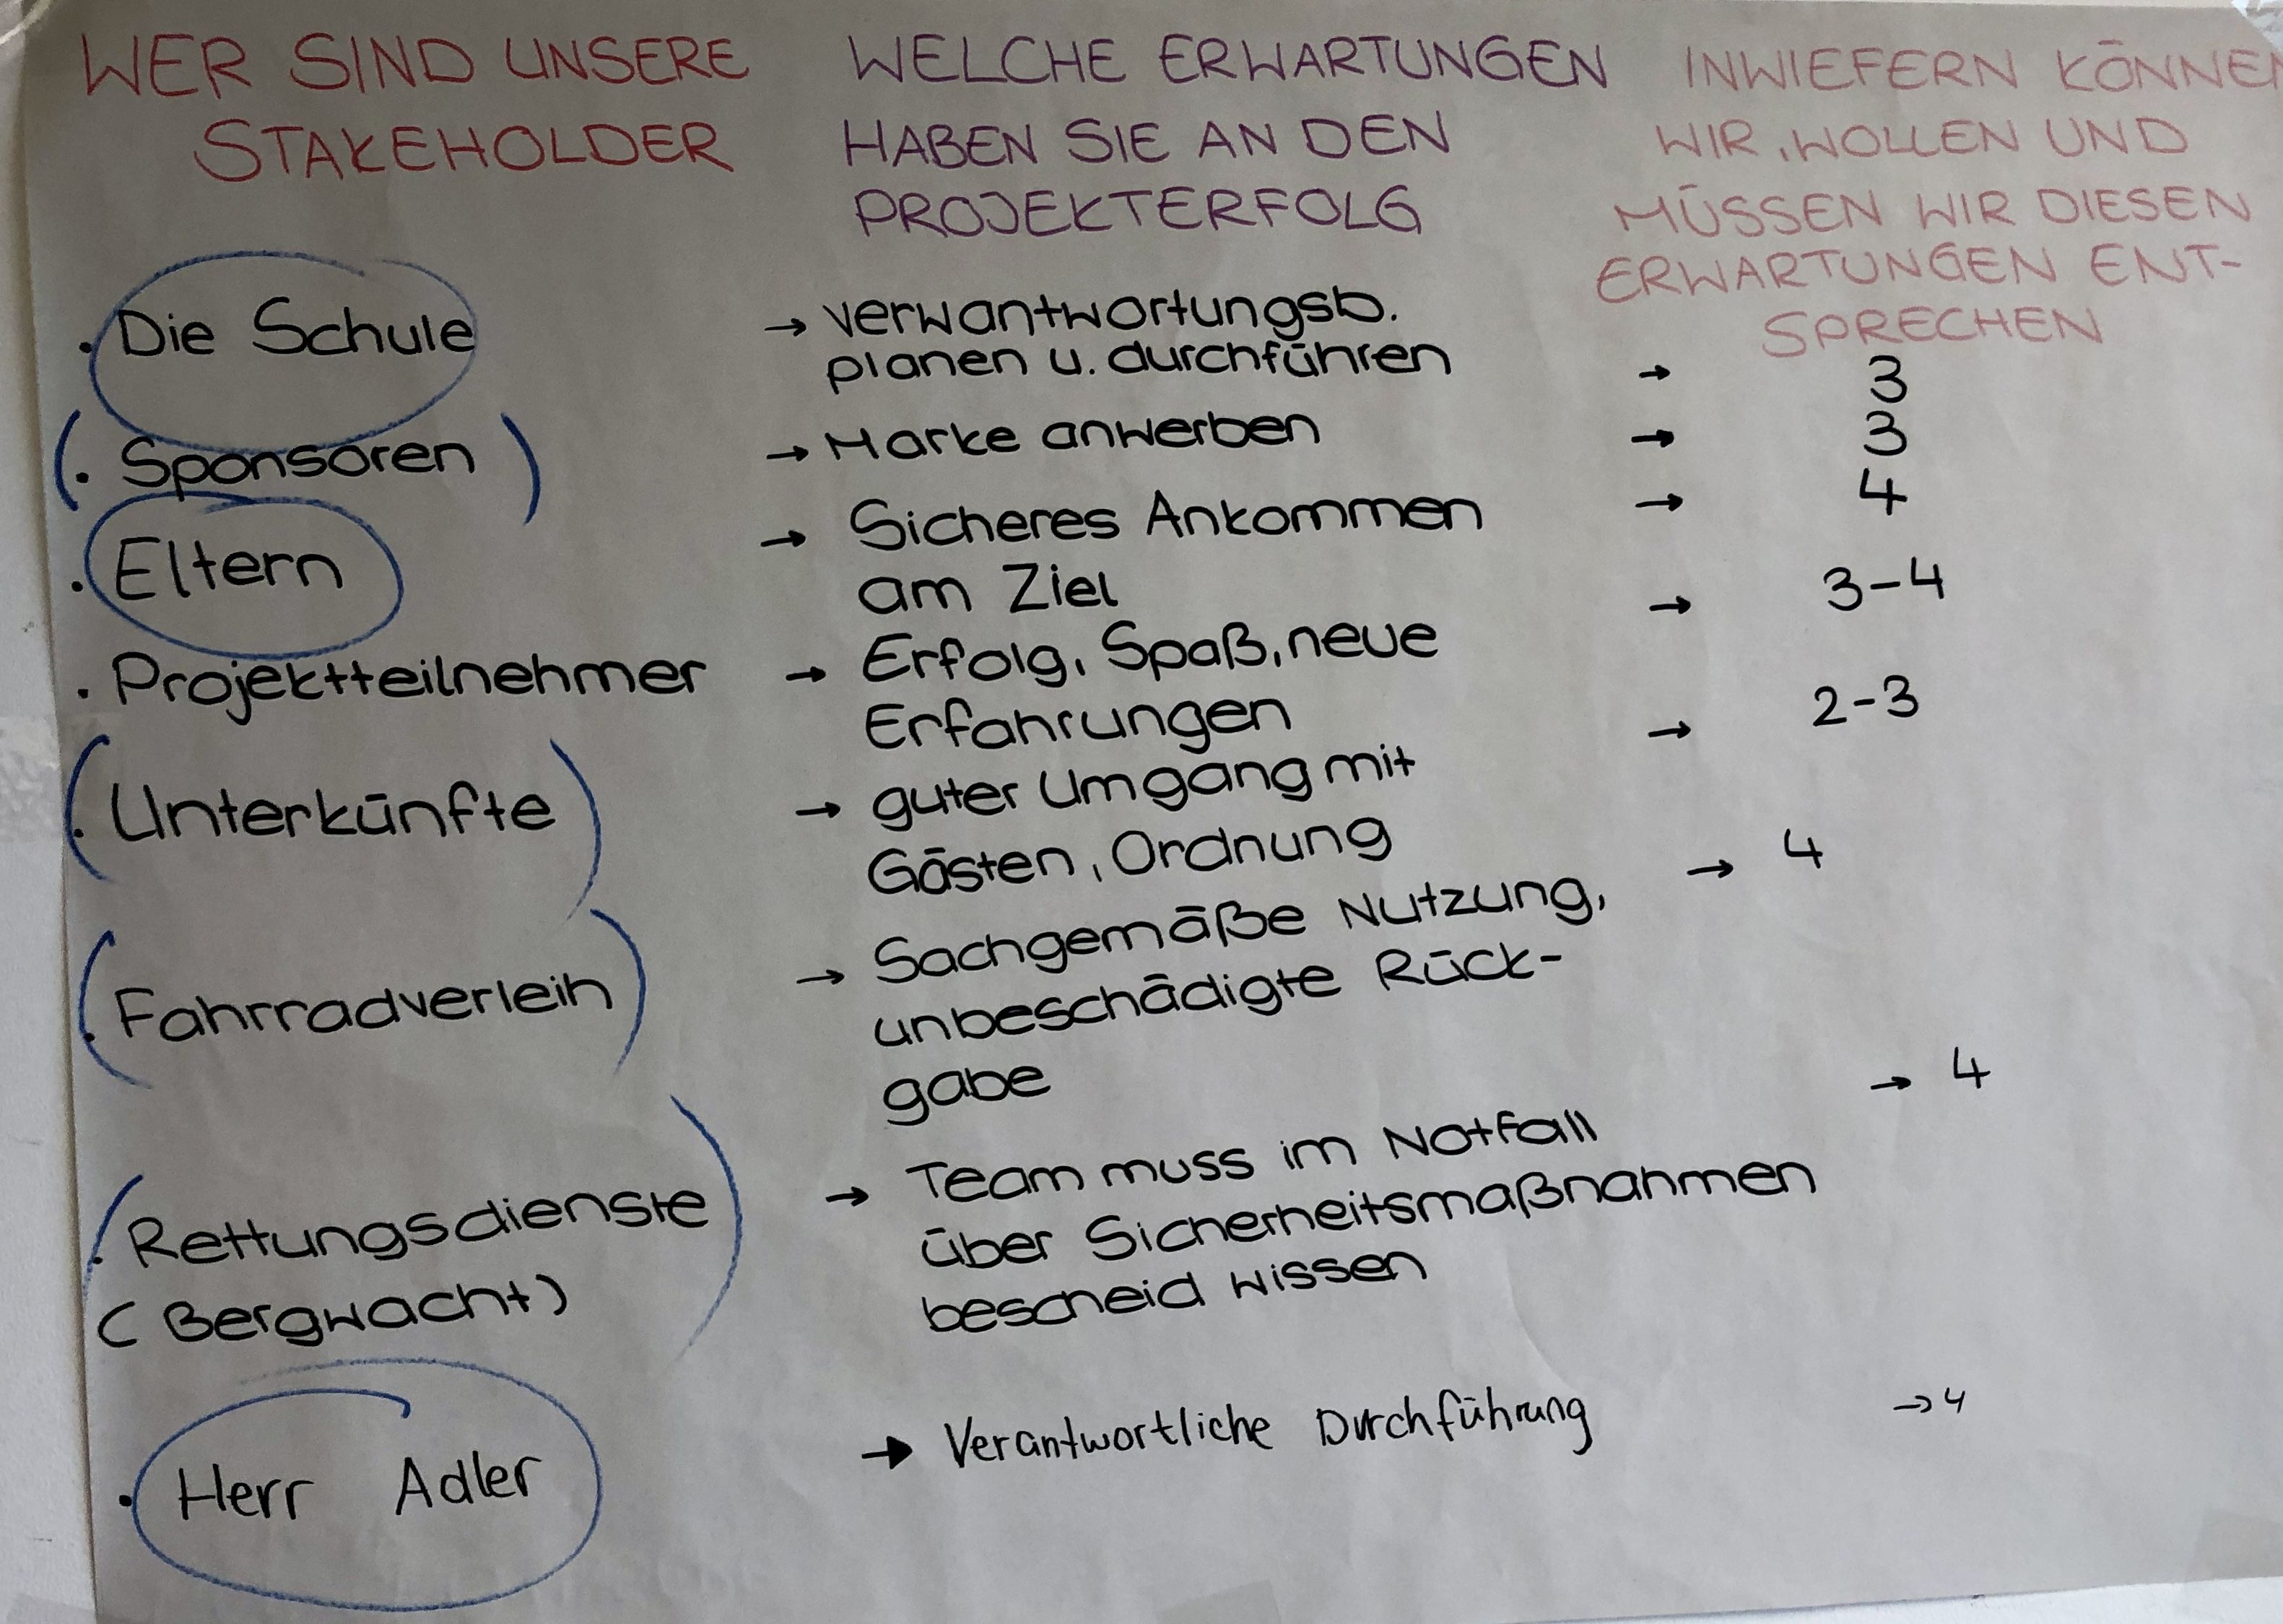 WER SIND UNSERE
STAKEHOLDER
WELCHE ERWARTUNGEN
HABEN SIE AN DEN
PROJEKTERFOLG
INWIEFERN KÖNNEN
WIR, WOLLEN UND
MÜSSEN WIR DIESEN
ERWARTUNGEN ENT-
SPRECHEN
. Die Schule
→ verwantwortungsb.
planen u. durchführen
→ 3
(. Sponsoren )
→ Marke anwerben
→ 3
. Eltern
→ Sicheres Ankommen
am Ziel
→ 4
. Projektteilnehmer
→ Erfolg, Spaß, neue
Erfahrungen
→ 3-4
(. Unterkünfte )
→ guter Umgang mit
Gästen, Ordnung
→ 2-3
(. Fahrradverleih )
→ Sachgemäße Nutzung,
unbeschädigte Rück-
gabe
→ 4
(. Rettungsdienste
(Bergwacht) )
→ Team muss im Notfall
über Sicherheitsmaßnahmen
bescheid wissen
→ 4
. Herr Adler
→ Verantwortliche Durchführung
→ 4